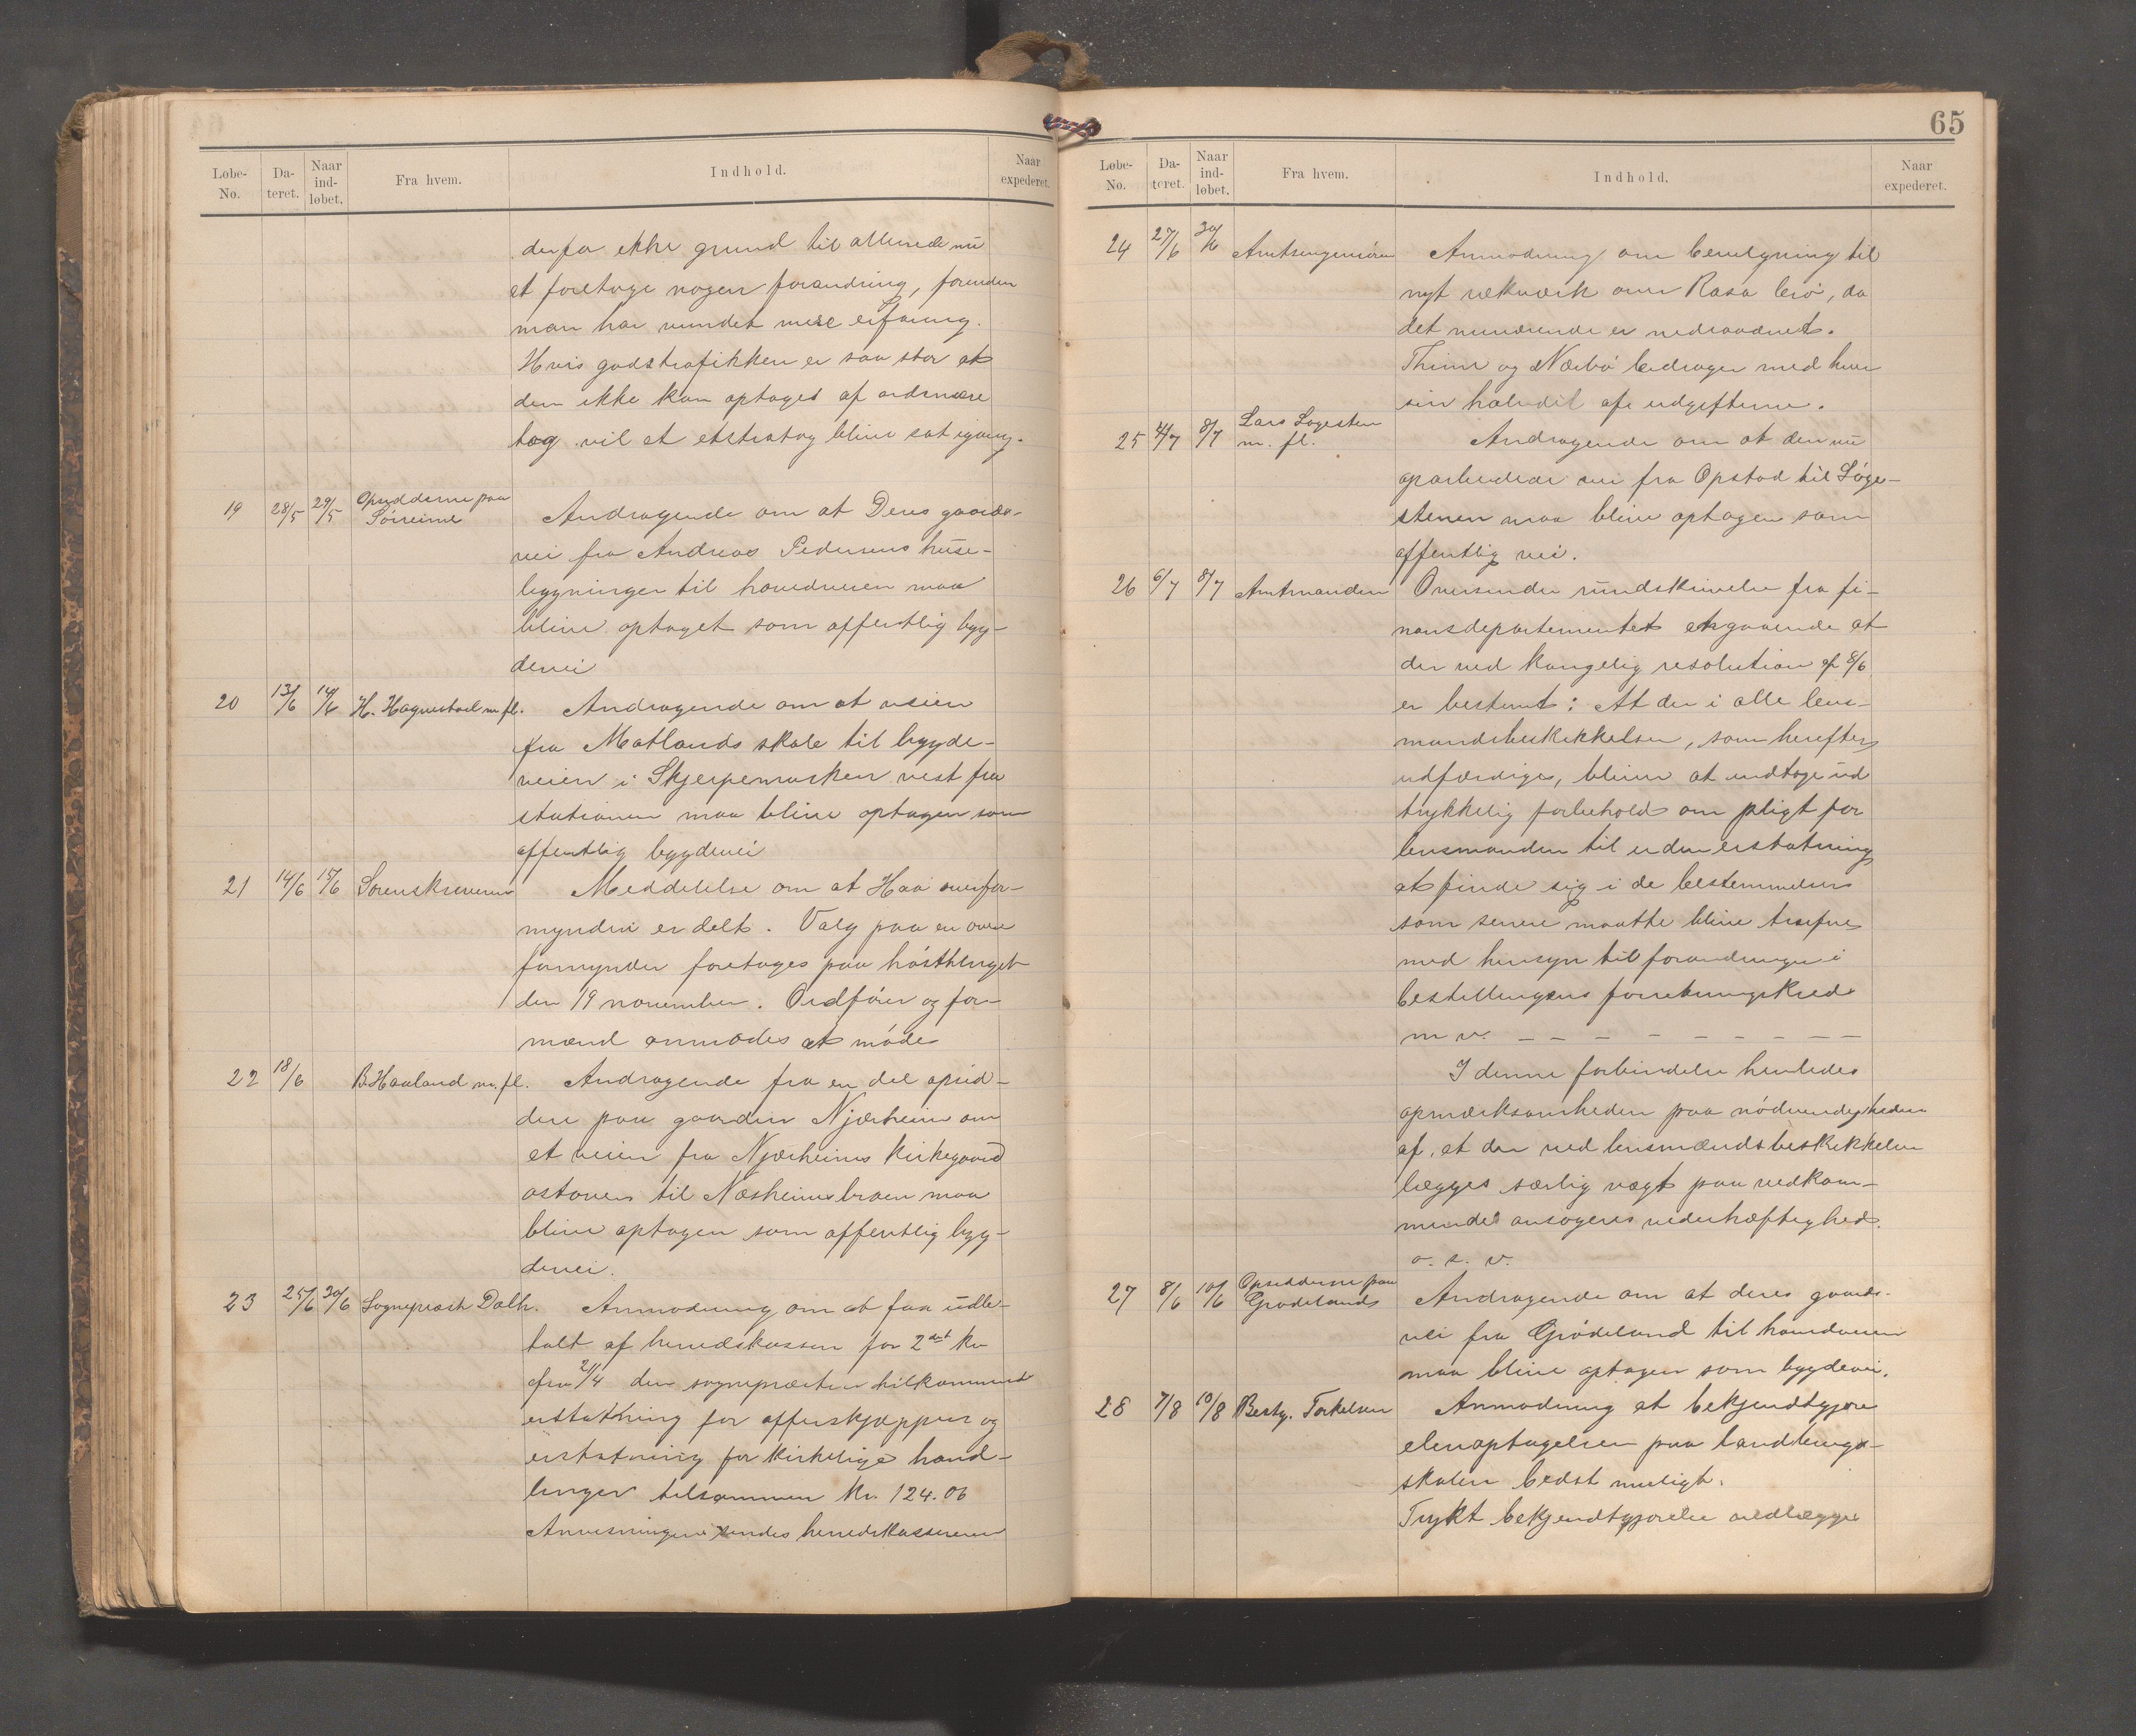 Løbe-No. Da-teret. Naar ind-løbet. Fra hvem. Indhold. Naar expederet.
derfor ikke grund til allerede nu
at foretage nogen forandring, forinden
man har vundet mere erfaring.
Hvis godstrafikken er saa stor at
den ikke kan optages af ordinære
tog vil et ekstratog blive sat igang.
19 28/5 29/5 Opsidderne paa Sørreime Andragende om at Deres gaards-
vei fra Andreas Pedersens huse-
bygninger til hovedveien maa
blive optaget som offentlig byg-
devei
20 13/6 14/6 H. Hognestad m. fl. Andragende om at veien
fra Motlands skole til bygde-
veien i Skjerpemarken vest fra
stationen maa blive optagen som
offentlig bygdevei
21 14/6 15/6 Sorenskriveren Meddelelse om at Haa overfor-
mynderi er delt. Valg paa en over
formynder foretages paa høstthinget
den 19 november. Ordfører og for-
mænd anmodes at møde
22 18/6 B Haaland m. fl. Andragende fra en del opsid-
dere paa gaarden Njærheim om
at veien fra Njærheims kirkegaard
østover til Næsheimsbroen maa
blive optagen som offentlig byg-
devei.
23 25/6 30/6 Sogneprest Dalh. Anmodning om at faa udbe-
talt af herredskassen for 2det kv
fra 2/4 den sognepresten tilkommende
erstatning for offerskjæpper og
erstatning for kirkelige hand-
linger tilsammen kr. 124.06
Anvisningen sendes herredskassereren
65
Løbe-No. Da-teret. Naar ind-løbet. Fra hvem. Indhold. Naar expederet.
24 27/6 30/6 Amtsingeniøren Anmodning om bevilgning til
nyt rækværk over Rasa bro, da
det nuværende er nedraadnet.
Thime og Nærbø bidrager med hver
sin halvdel af udgifterne.
25 4/7 8/7 Lars Løgesten m. fl. Andragende om at den nu
oparbeidede vei fra Opstad til Løge-
stenen maa blive optagen som
offentlig vei.
26 6/7 8/7 Amtmanden Oversender rundskrivelse fra fi-
nansdepartementet angaaende at
der ved kongelig resolution af 8/6
er bestemt: At der i alle lens-
mandsbeskikkelser, som herefter
udfærdiges, bliver at indtage ud
trykkelig forbehold om pligt for
lensmanden til uden erstatning
at finde sig i de bestemmelser
som senere maatte blive trufne
med hensyn til forandringer i
bestillingens forretningskreds
m v. — — — — — — — —
I denne forbindelse henledes
opmærksomheden paa nødvendigheden
af, at der ved lensmændsbeskikkelser
lægges særlig vægt paa vedkom-
mende ansøgeres vederhæftighed.
o. s. v.
27 8/6 10/6 Opsidderne paa Grødelands Andragende om at deres gaards-
vei fra Grødeland til hovedveien
maa blive optagen som bygdevei.
28 7/8 10/8 Besty. Torkelsen Anmodning at bekjendtgjøre
elevoptagelsen paa landbrugs-
skolen bedst muligt.
Trykt bekjendtgjørelse vedlægges